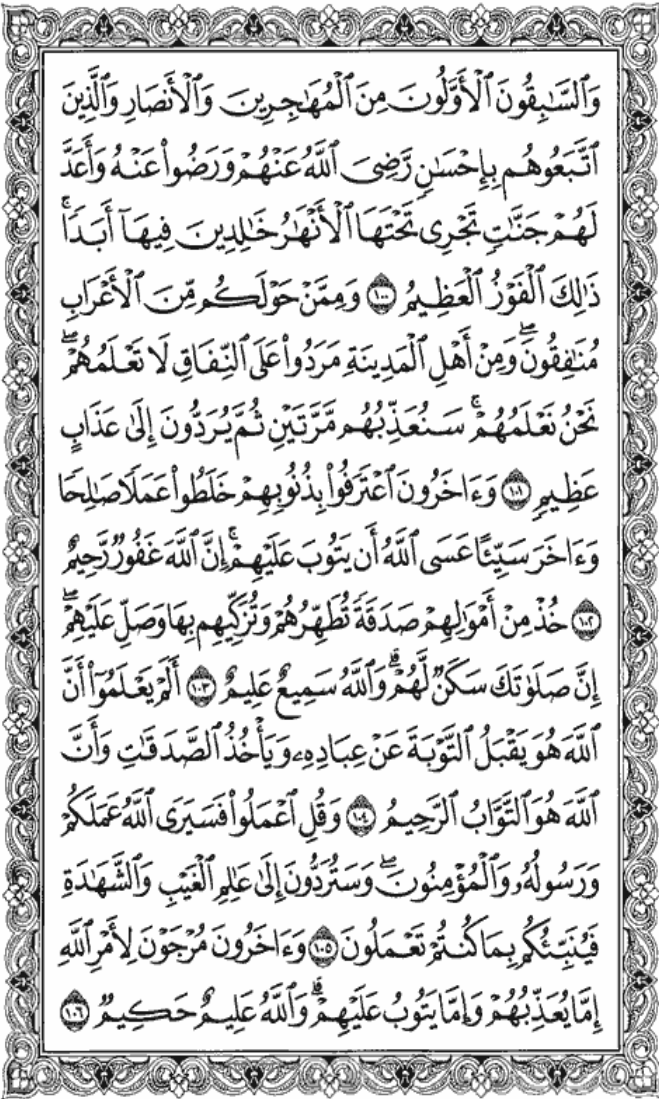 وَٱلسَّٰبِقُونَ ٱلْأَوَّلُونَ مِنَ ٱلْمُهَٰجِرِينَ وَٱلْأَنصَارِ وَٱلَّذِينَ
ٱتَّبَعُوهُم بِإِحْسَٰنٍ رَّضِىَ ٱللَّهُ عَنْهُمْ وَرَضُوا۟ عَنْهُ وَأَعَدَّ
لَهُمْ جَنَّٰتٍ تَجْرِى تَحْتَهَا ٱلْأَنْهَٰرُ خَٰلِدِينَ فِيهَآ أَبَدًا ۚ
ذَٰلِكَ ٱلْفَوْزُ ٱلْعَظِيمُ ١٠٠ وَمِمَّنْ حَوْلَكُم مِّنَ ٱلْأَعْرَابِ
مُنَٰفِقُونَ ۖ وَمِنْ أَهْلِ ٱلْمَدِينَةِ مَرَدُوا۟ عَلَى ٱلنِّفَاقِ لَا تَعْلَمُهُمْ ۖ
نَحْنُ نَعْلَمُهُمْ ۚ سَنُعَذِّبُهُم مَّرَّتَيْنِ ثُمَّ يُرَدُّونَ إِلَىٰ عَذَابٍ
عَظِيمٍ ١٠١ وَءَاخَرُونَ ٱعْتَرَفُوا۟ بِذُنُوبِهِمْ خَلَطُوا۟ عَمَلًا صَٰلِحًا
وَءَاخَرَ سَيِّئًا عَسَى ٱللَّهُ أَن يَتُوبَ عَلَيْهِمْ ۚ إِنَّ ٱللَّهَ غَفُورٌ رَّحِيمٌ
١٠٢ خُذْ مِنْ أَمْوَٰلِهِمْ صَدَقَةً تُطَهِّرُهُمْ وَتُزَكِّيهِم بِهَا وَصَلِّ عَلَيْهِمْ ۖ
إِنَّ صَلَوٰتَكَ سَكَنٌ لَّهُمْ ۗ وَٱللَّهُ سَمِيعٌ عَلِيمٌ ١٠٣ أَلَمْ يَعْلَمُوٓا۟ أَنَّ
ٱللَّهَ هُوَ يَقْبَلُ ٱلتَّوْبَةَ عَنْ عِبَادِهِۦ وَيَأْخُذُ ٱلصَّدَقَٰتِ وَأَنَّ
ٱللَّهَ هُوَ ٱلتَّوَّابُ ٱلرَّحِيمُ ١٠٤ وَقُلِ ٱعْمَلُوا۟ فَسَيَرَى ٱللَّهُ عَمَلَكُمْ
وَرَسُولُهُۥ وَٱلْمُؤْمِنُونَ ۖ وَسَتُرَدُّونَ إِلَىٰ عَٰلِمِ ٱلْغَيْبِ وَٱلشَّهَٰدَةِ
فَيُنَبِّئُكُم بِمَا كُنتُمْ تَعْمَلُونَ ١٠٥ وَءَاخَرُونَ مُرْجَوْنَ لِأَمْرِ ٱللَّهِ
إِمَّا يُعَذِّبُهُمْ وَإِمَّا يَتُوبُ عَلَيْهِمْ ۗ وَٱللَّهُ عَلِيمٌ حَكِيمٌ ١٠٦